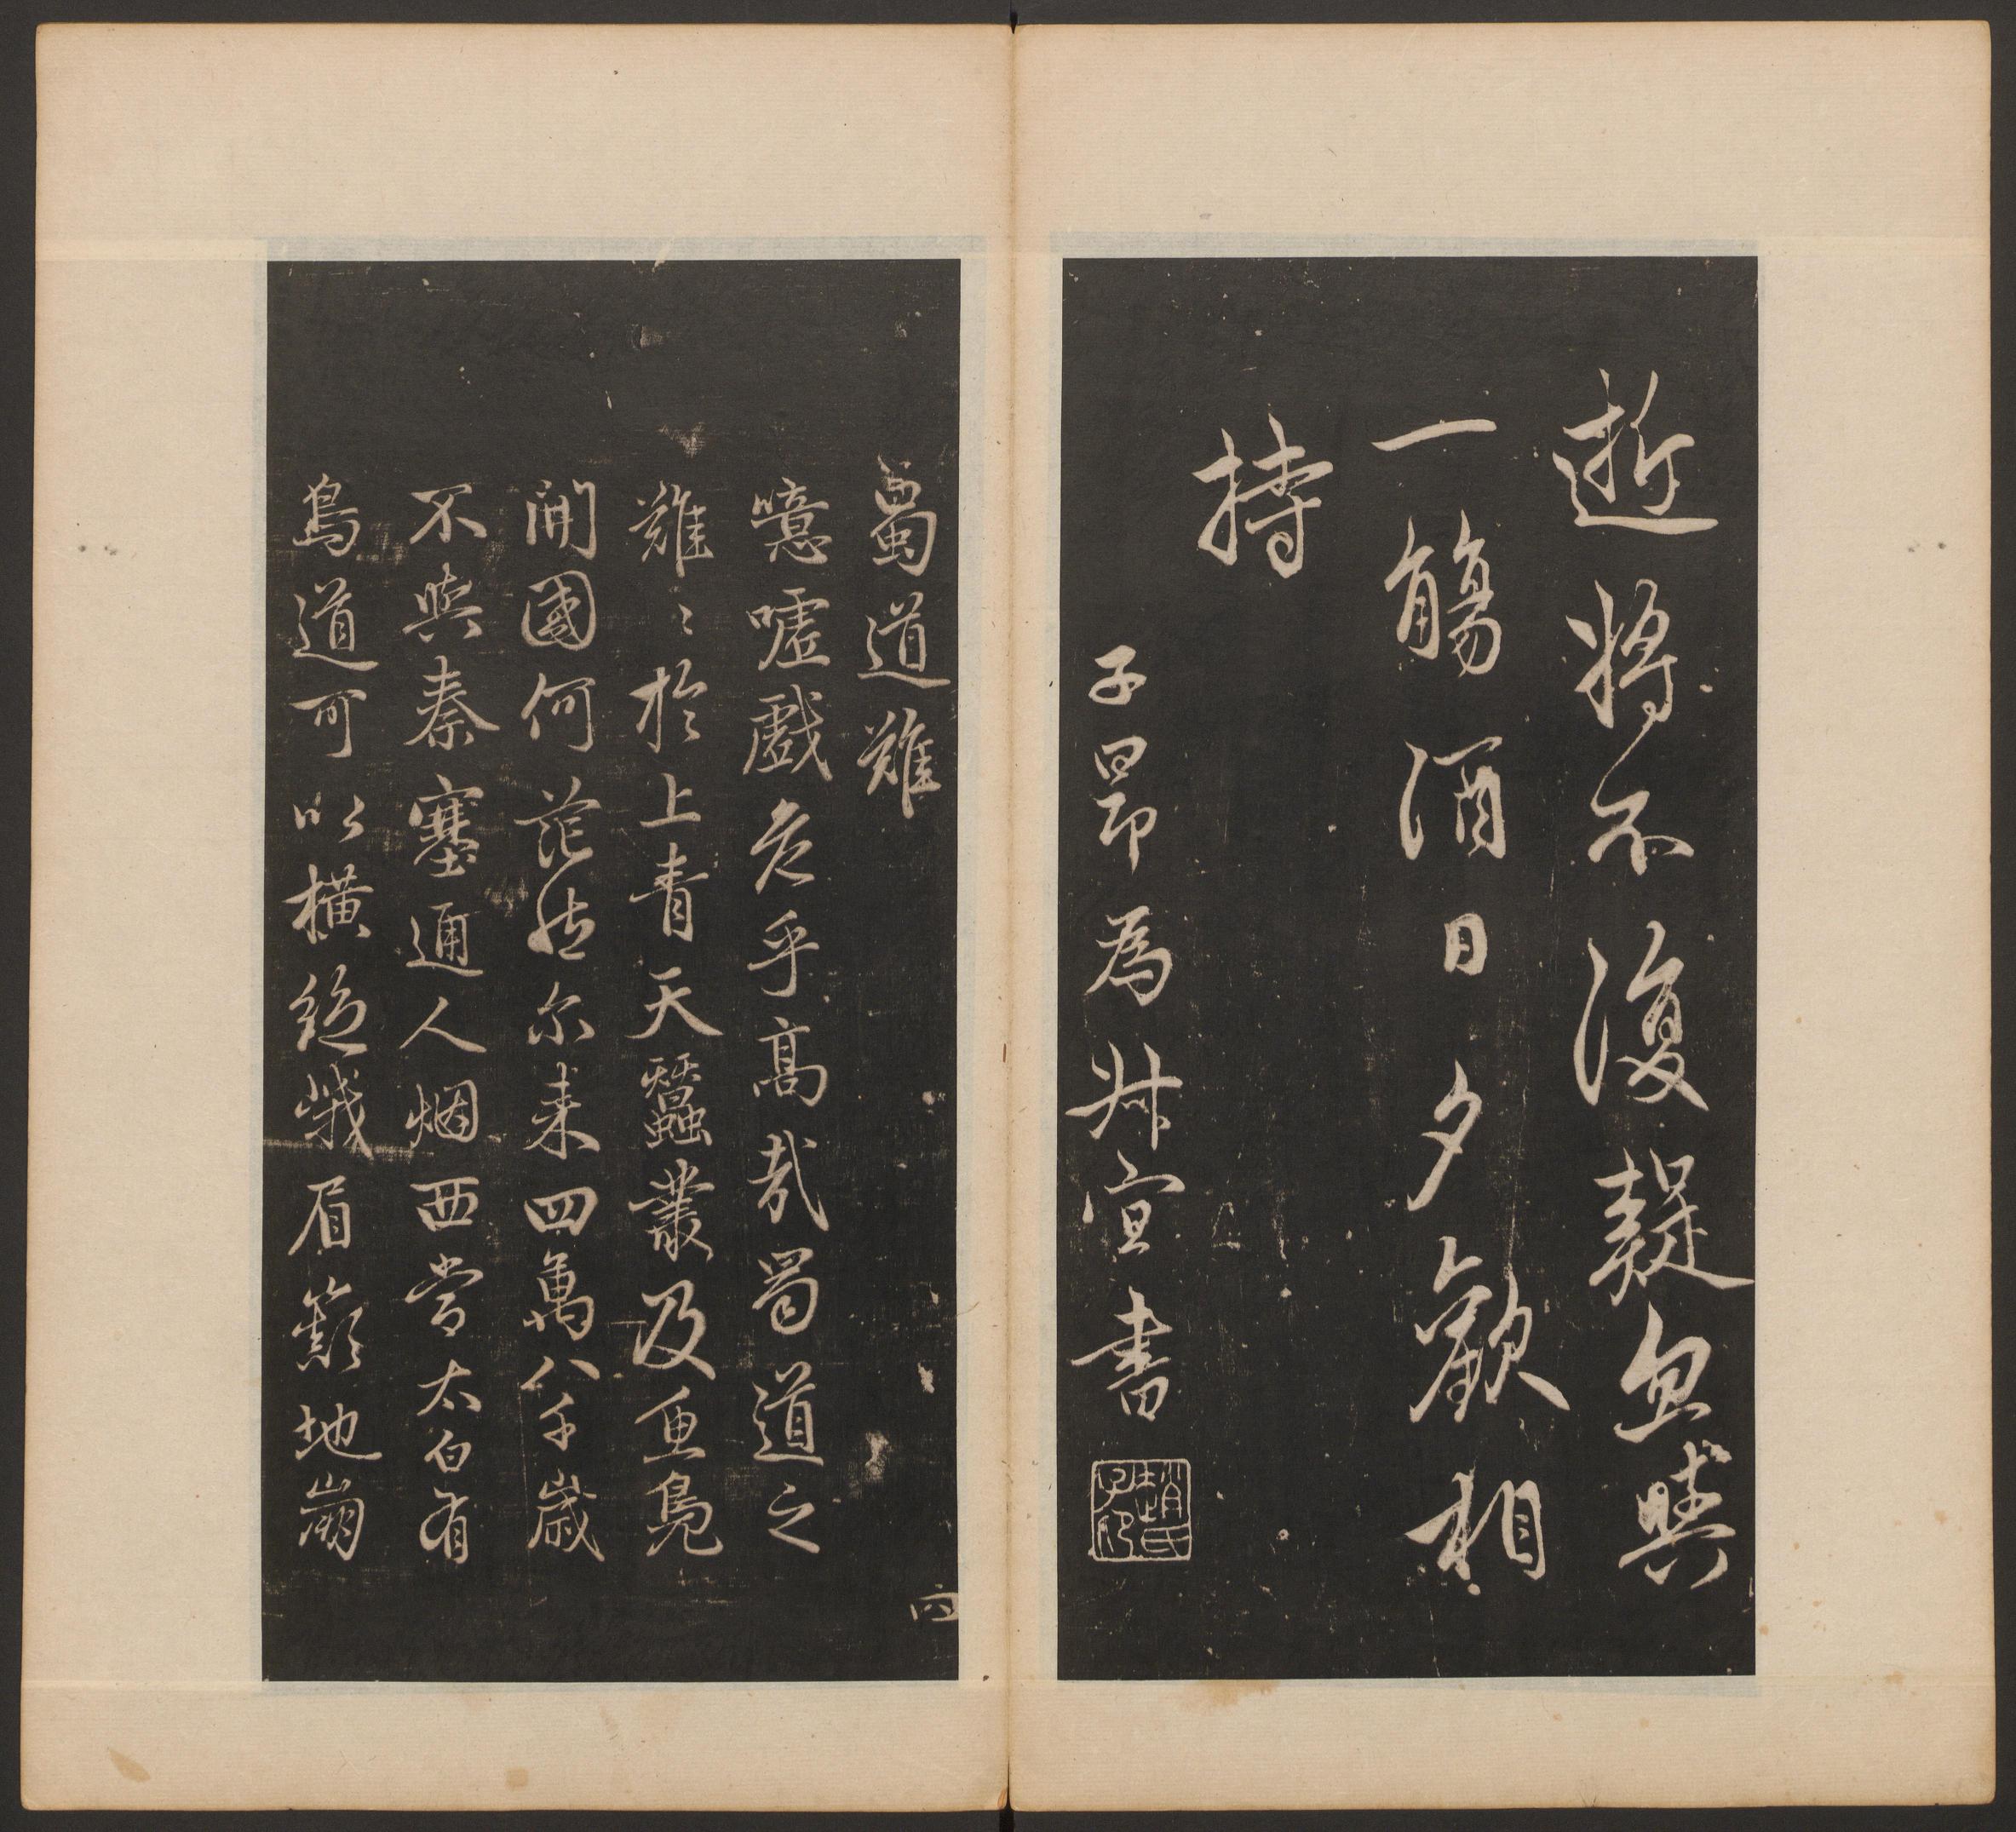 逝將不復疑忽與
一觴酒日夕歡相
持
子昂為叔宣書
趙氏子昂
蜀道難
噫嘘戲危乎高哉蜀道之
難〻於上青天蠶叢及魚鳧
開國何茫然尔来四萬八千歲
不與秦塞通人烟西當太白有
鳥道可以橫絶峨眉巔地崩